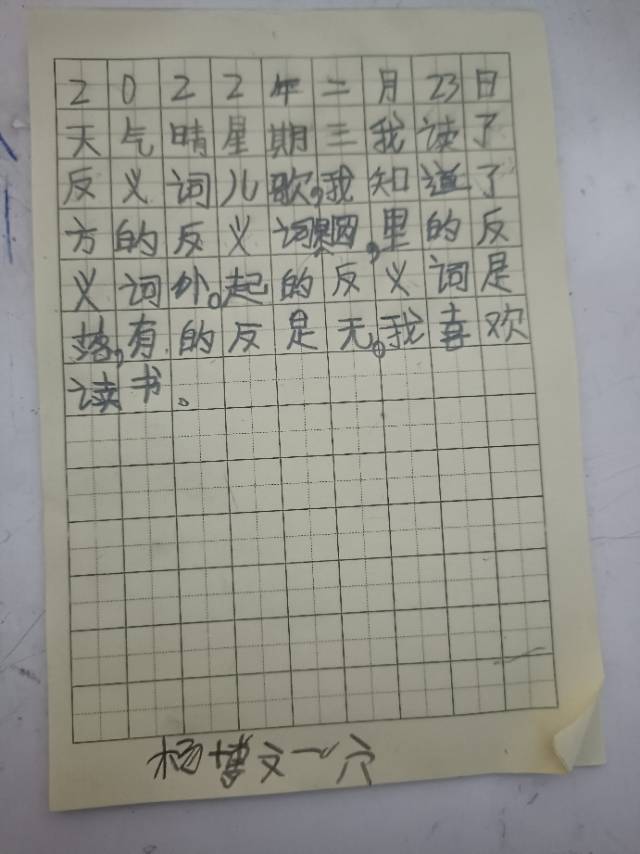 2022年二月23日
天气晴星期三我读了
反义词儿歌,我知道了
方的反义词是圆,里的反
义词外。起的反义词是
落,有的反是无。我喜欢
读书。
杨博文一穴